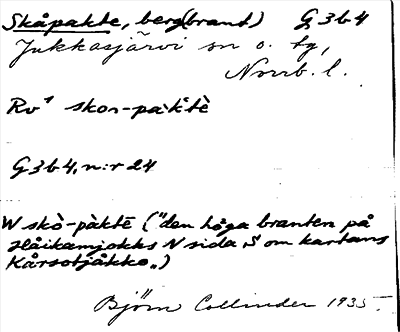 Skåpakte, berg(brant) G 3 b 4
Jukkasjärvi sn o. tg,
Norrb. l.
Rv⁴ skoə-pa·k̀tè
G 3 b 4, n:r 24
W skò-pàktē ("den höga branten på
Håikamjokks N sida, S om kartans
Kårsotjåkko„)
Björn Collinder 1935.